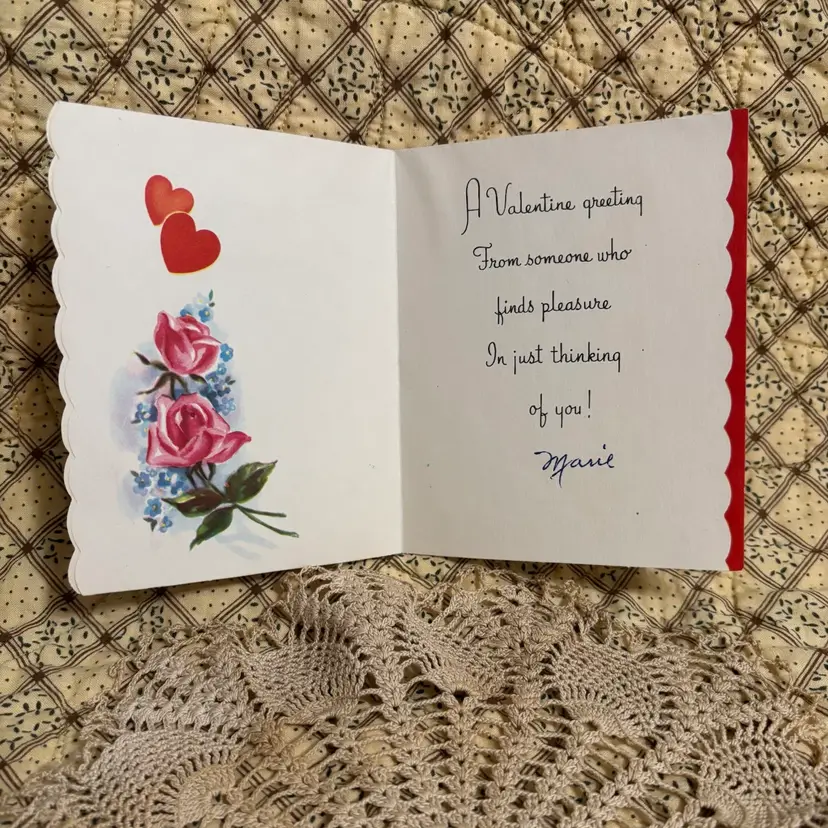 A Valentine greeting
From someone who
finds pleasure
In just thinking
of you!
Marie